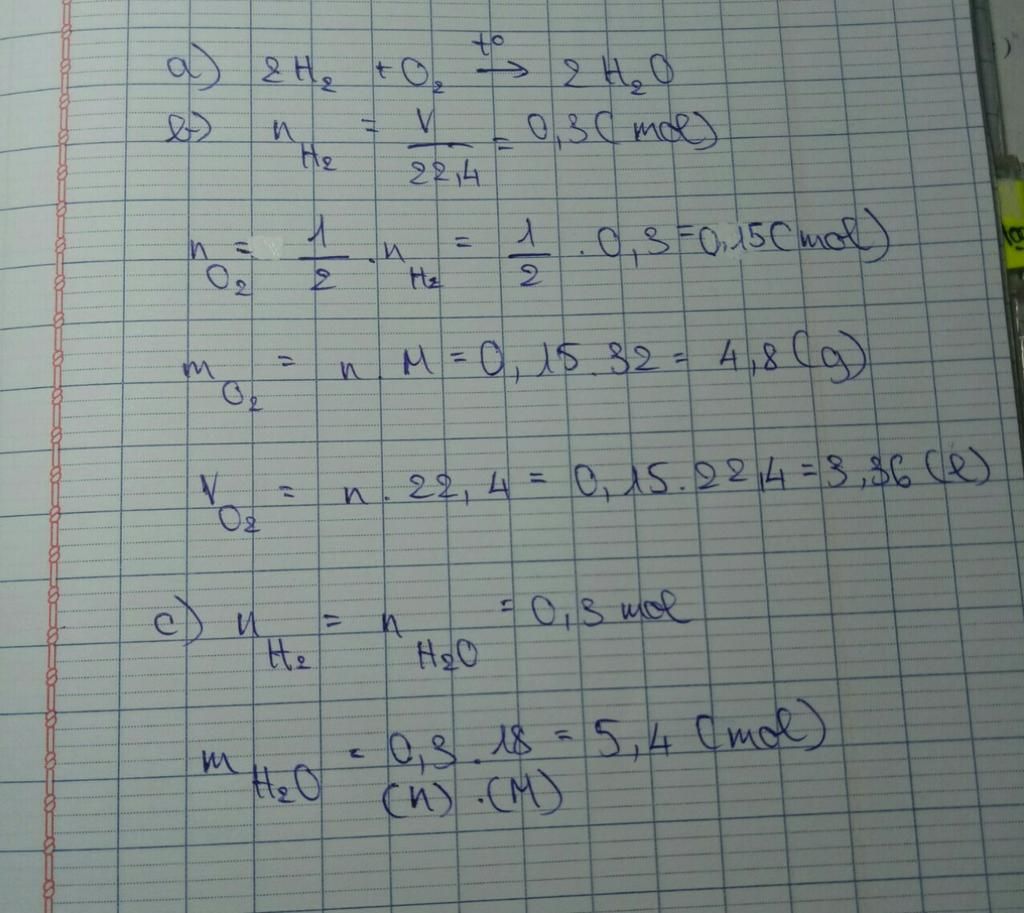 a) 2H₂ + O₂ →(t°) 2H₂O
b) n_H₂ = V/22,4 = 0,3 (mol)
n_O₂ = 1/2 . n_H₂ = 1/2 . 0,3 = 0,15 (mol)
m_O₂ = n . M = 0,15 . 32 = 4,8 (g)
V_O₂ = n . 22,4 = 0,15 . 22,4 = 3,36 (l)
c) n_H₂ = n_H₂O = 0,3 mol
m_H₂O = 0,3 . 18 = 5,4 (mol)
(n) . (M)